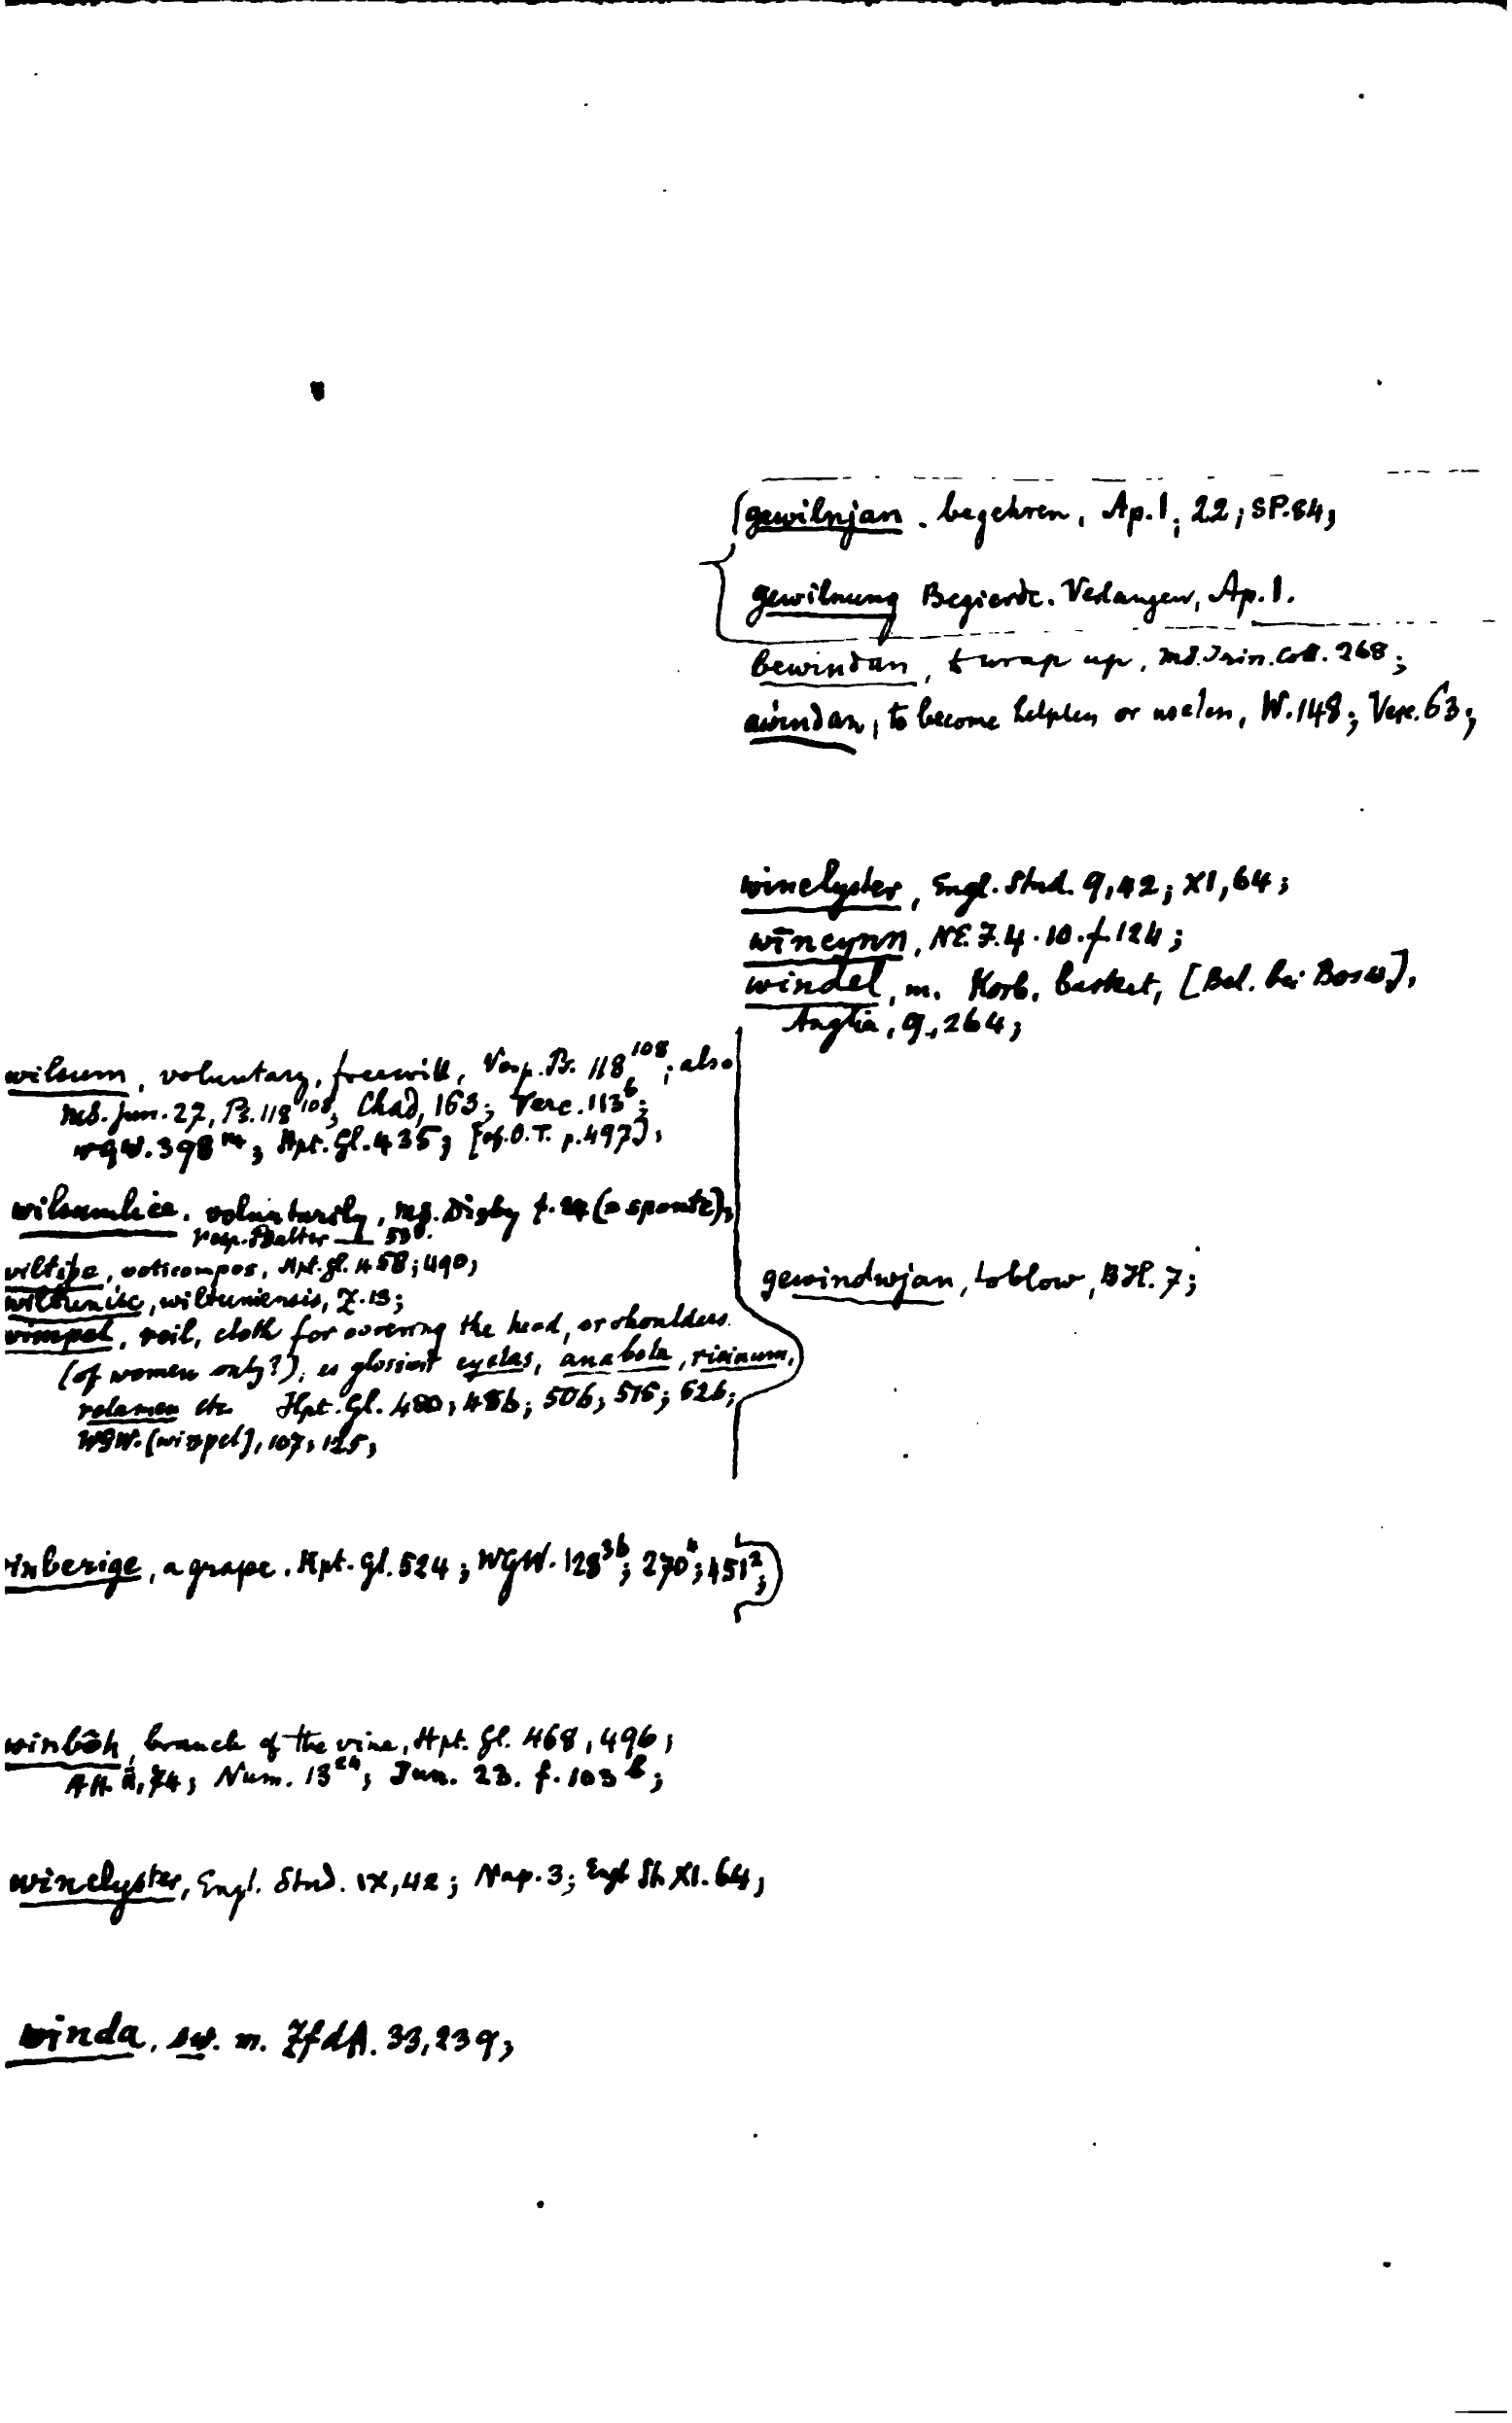 gewilnjan. begehren, Ap. 1, 22; SP. 84;
gewilnung Begierde. Verlangen, Ap. 1.
bewindan, to wrap up, MS. Trin. Coll. 268;
awindan, to become helpless or useless, W. 148; Verc. 63;
winclyster, Engl. Stud. 9, 42; XI, 64;
wīncynn, NE. F. 4. 10. f. 124;
windel, m. Korb, basket, [Bel. bei Bosw.],
Anglia, 9, 264;
gewindwjan, to blow, BH. 7;
wilsum, voluntary, freewill, Vesp. Ps. 118 108; also
MS. Jun. 27, Ps. 118 108; Chad, 163; Verc. 113 b;
WGW. 398; Hpt. Gl. 435; [cf. O.T. p. 497];
wilsumlice. voluntarily, MS. Digby f. (a sponte);
Vesp. Psalter 53
wiltiþe, voticompos, Hpt. Gl. 458; 490;
wiltunisc, wiltuniensis, Z. 13;
wimpel, veil, cloth for covering the head, or shoulders
(of women only?), es glossiert cyclas, anabola, ricinum,
velamen etc. Hpt. Gl. 480; 486; 506; 515; 526;
WGW. (winpel), 107; 125;
winberige, a grape. Hpt. Gl. 524; WGW. 128 36; 270; 451 2;
winbôh, branch of the vine, Hpt. Gl. 468, 496;
ÆH. ii, 74; Num. 13 24; Jun. 23. f. 103 b;
winclyster, Engl. Stud. IX, 42; Nap. 3; Engl. St. XI. 64;
winda, sw. m. ZfdA. 33, 239;